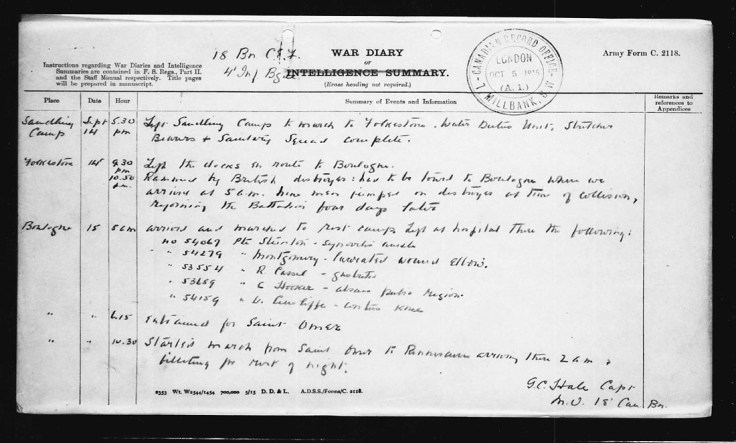 18 Bn C.E.F.
4" Inf Bgde
WAR DIARY
OR
INTELLIGENCE SUMMARY.
(Erase heading not required.)
Army Form C. 2118.
Instructions regarding War Diaries and Intelligence
Summaries are contained in F. S. Regs., Part II.
and the Staff Manual respectively. Title pages
will be prepared in manuscript.
CANADIAN RECORD OFFICE
LONDON
OCT 5 1915
MILLBANK, S.W.
Place Date Hour Summary of Events and Information Remarks and references to Appendices
Sandling Camp Sept 14 5.30 pm Left Sandling Camp to march to Folkestone. Water Duties Unit, Stretcher
Bearers + Sanitary Squad complete.
Folkestone 14 9.30 pm Left the docks en route to Boulogne.
10.50 pm. Rammed by British destroyer: had to be towed to Boulogne where we
arrived at 5 a.m. Nine men jumped on destroyer at time of collision,
rejoining the Battalion four days later
Boulogne 15 5 am arrived and marched to rest camp. Left at hospital there the following:
no 54069 Pte - Synovitis ankle
" 54279 " Montgomery - lacerated wound Elbow.
" 53554 " R Cassel - gastritis
" 53689 " C Hooker - abscess pubic region
" 54159 " Cunliffe - knee
" " 6.15 entrained for Saint Omer
" " 10.30 Started march from Saint Omer to arriving there 2 am +
billeting for rest of night.
G.C. Hale Capt
M.O. 18" Can. Bn.
2353 Wt. W2544/1454 700,000 5/15 D. D. & L. A.D.S.S./Forms/C. 2118.